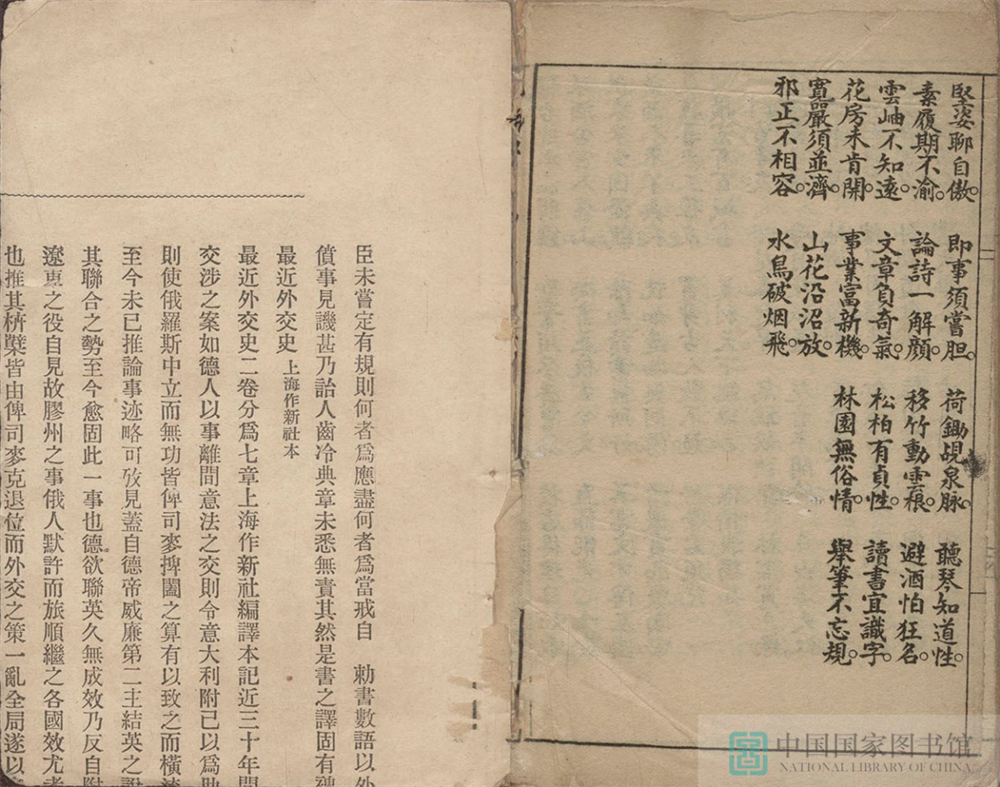 堅姿聊自傲。
素履期不渝。
雲岫不知遠。
花房未肯開。
寬嚴須並濟。
邪正不相容。
即事須嘗胆。
論詩一解顏。
文章負奇氣。
事業富新機。
山花沿沼放。
水鳥破烟飛。
荷鋤覘泉脉。
移竹動雲痕。
松柏有貞性。
林園無俗情。
聽琴知道性。
避酒怕狂名。
讀書宜識字。
舉筆不忘規。
臣未嘗定有規則何者為應盡何者為當戒自 勅書數語以外
僨事見譏甚乃詒人齒冷典章未悉無責其然是書之譯固有
最近外交史 上海作新社本
最近外交史二卷分爲七章上海作新社編譯本記近三十年間
交涉之案如德人以事離間意法之交則令意大利附已以爲助
則使俄羅斯中立而無功皆俾司麥捭闔之算有以致之而橫
至今未已推論事迹略可攷見蓋自德帝威廉第二主結英之
其聯合之勢至今愈固此一事也德欲聯英久無成效乃反自附
遼東之役自見故膠州之事俄人默許而旅順繼之各國效尤者
也推其枅櫱皆由俾司麥克退位而外交之策一亂全局遂以
中国国家图书馆
NATIONAL LIBRARY OF CHINA